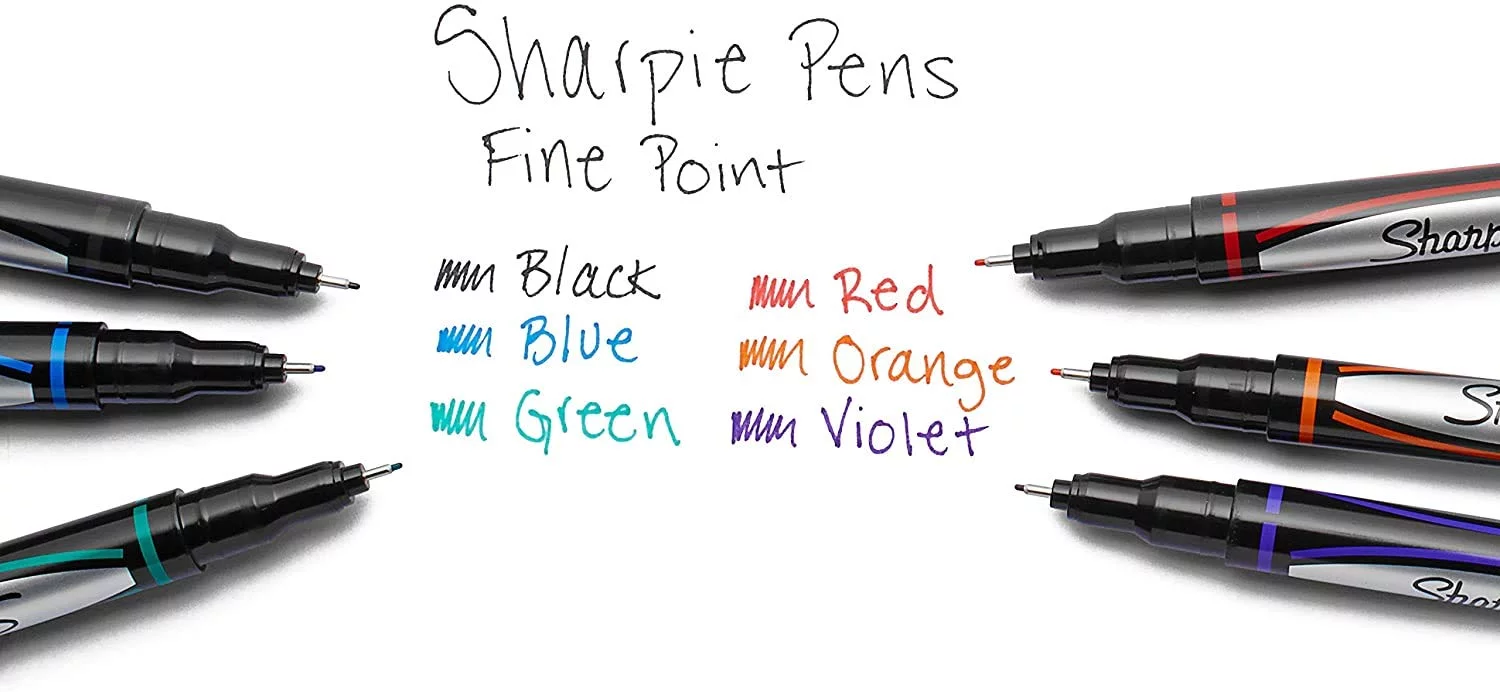 Sharpie Pens
Fine Point
Black
Blue
Green
Red
Orange
Violet
Sharp
S
Shar